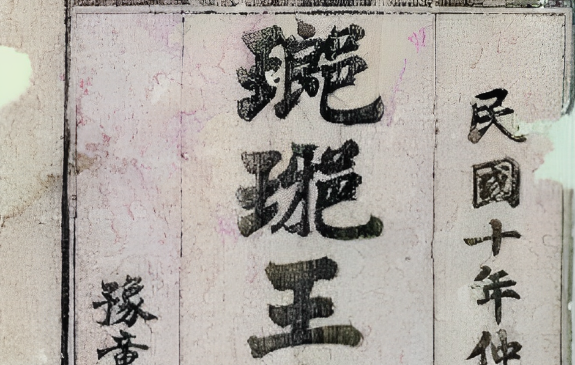 民國十年仲
瑯琊王
豫章